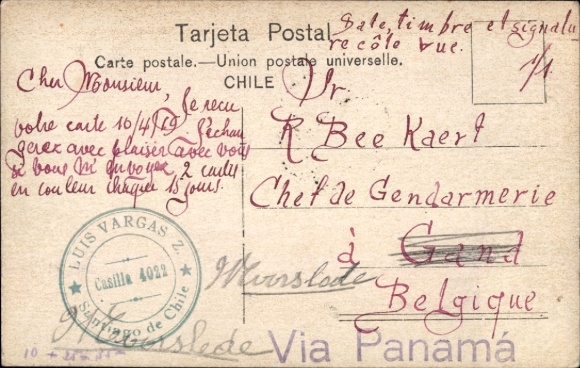 Tarjeta Postal
Date, timbre et signature
re côte vue.
Carte postale.—Union postale universelle.
CHILE
1/1
Cher Monsieur,
Je recu
votre carte 10/4/19 J'echan
gerez avec plaisir avec vous
si vous m'envoyez 2 cartes
en couleur chaque 15 jours.
Mr.
R Bee Kaert
Chef de Gendarmerie
à Gand
Belgique
LUIS VARGAS Z.
Casilla 4022
Santiago de Chile
Via Panamá